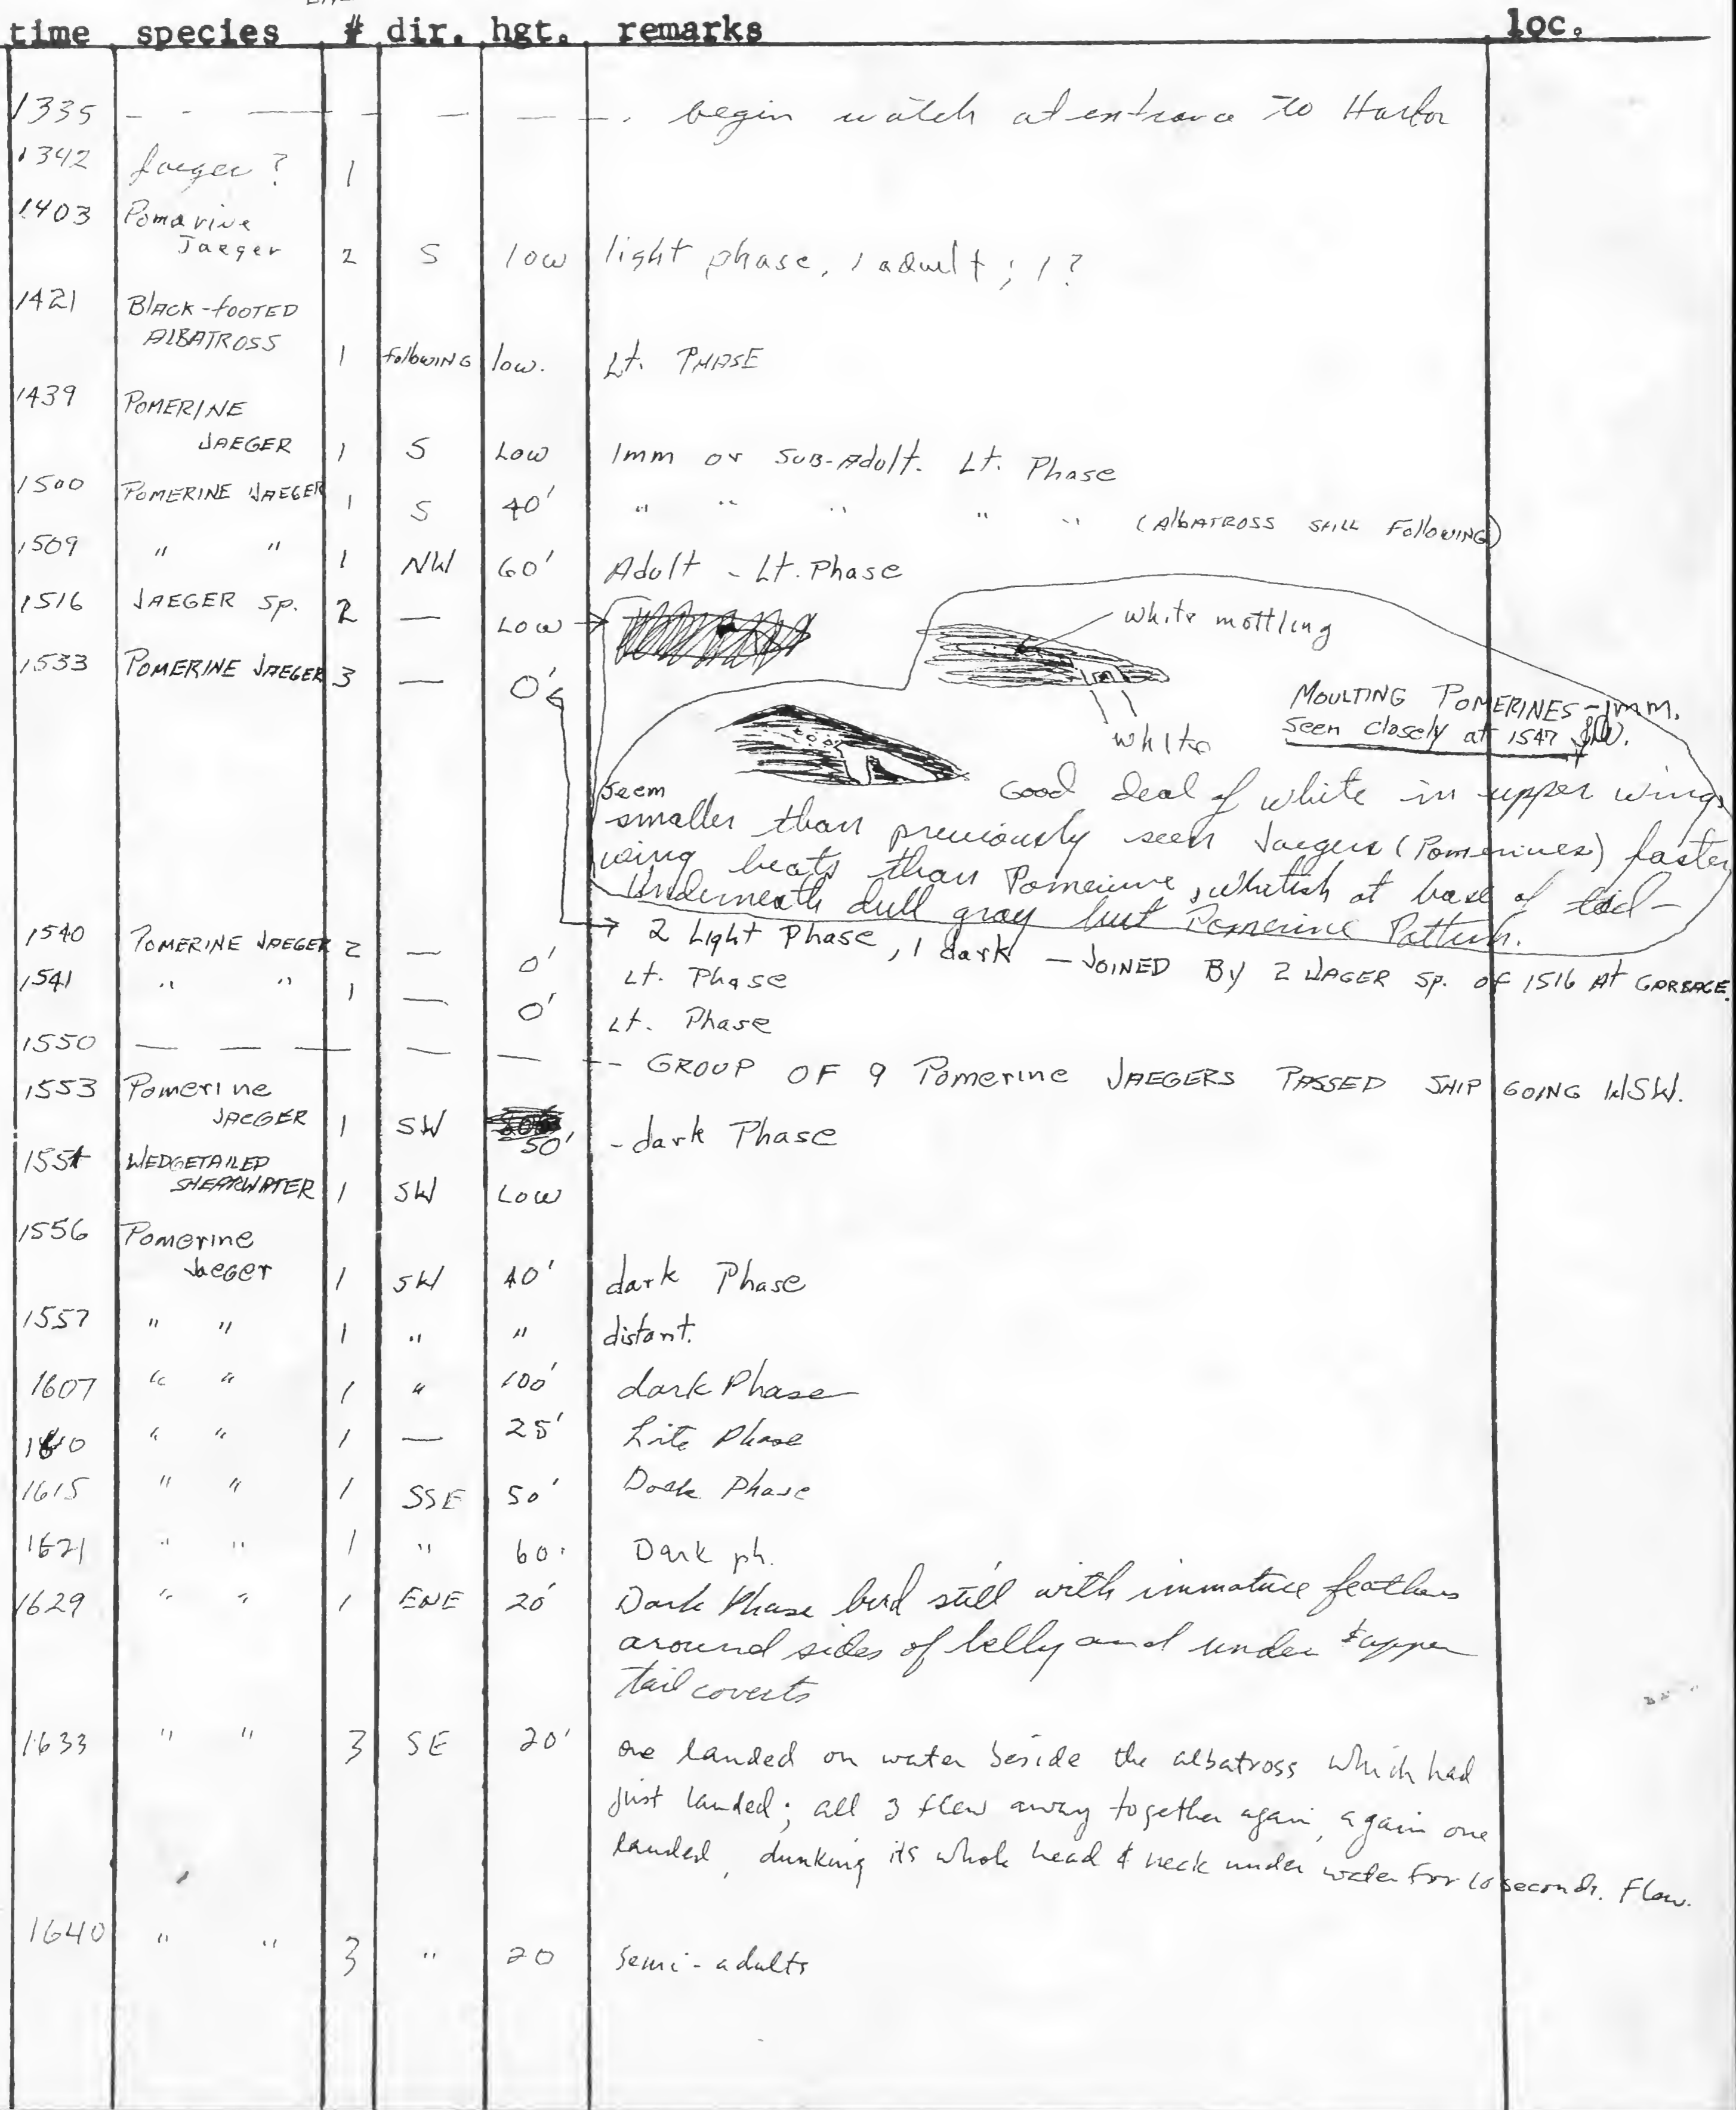 time species # dir. hgt. remarks loc.
1335 - - — - — — - . begin watch at entrance to Harbor
1342 Jaeger ? 1
1403 Pomarine
Jaeger 2 S low light phase, 1 adult ; 1 ?
1421 BLACK-FOOTED
ALBATROSS 1 following low. Lt. PHASE
1439 POMERINE
JAEGER 1 S Low Imm or SUB-Adult. Lt. Phase
1500 POMERINE JAEGER 1 S 40' " " " " " (AlbATROSS STILL FOllOWING)
1509 " " 1 NW 60' Adult - Lt. Phase
1516 JAEGER sp. 2 — Low
white mottling
1533 POMERINE JAEGER 3 — 0'
white
MOULTING POMERINES - Imm.
Seen closely at 1547
Seem Good deal of white in upper wings
smaller than previously seen Jaegers (Pomerines) faster
wing beats than Pomerine, whitish at base of tail -
Underneath dull gray but Pomerine Pattern.
2 Light Phase, 1 dark — JOINED By 2 JAGER sp. of 1516 At GARBAGE.
1540 POMERINE JAEGER 2 — 0' Lt. Phase
1541 " " 1 — 0' Lt. Phase
1550 — — — — — -- GROUP OF 9 Pomerine JAEGERS PASSED SHIP GOING WSW.
1553 Pomerine
JAEGER 1 SW 50' - dark Phase
1554 WEDGETAILED
SHEARWATER 1 SW Low
1556 Pomerine
Jaeger 1 SW 40' dark Phase
1557 " " 1 " " distant.
1607 " " 1 " 100' dark Phase
1610 " " 1 — 25' Lite Phase
1615 " " 1 SSE 50' Dark Phase
1621 " " 1 " 60' Dark ph.
1629 " " 1 ENE 20' Dark Phase bird still with immature feathers
around sides of belly and under & upper
tail coverts
1633 " " 3 SE 20' one landed on water beside the albatross which had
just landed; all 3 flew away together again, again one
landed, dunking its whole head & neck under water for 10 seconds. Flew.
1640 " " 3 " 20 semi-adults